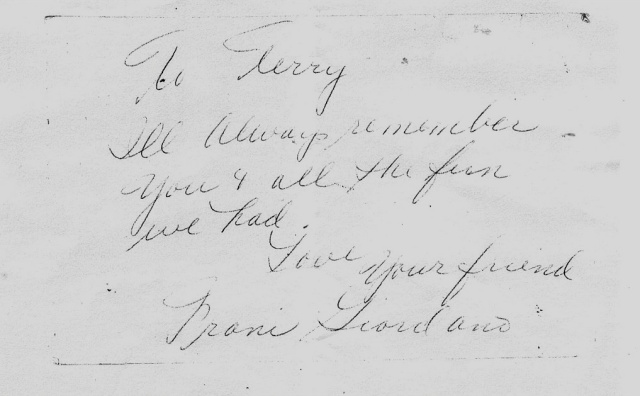 To Terry
I'll Always remember
You & all the fun
we had.
Love Your friend
Frani Giordano